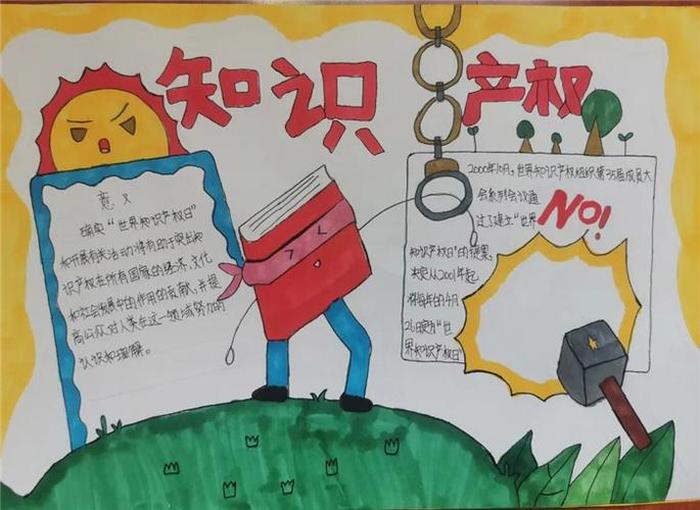 知识
产权
意义
确实“世界知识产权日”
和开展有关活动将有助于突出知
识产权在所有国家的经济，文化
和社会发展中的作用的贡献，并提
高公众对人类在这一领域努力的
认识和理解。
2000年10月，世界知识产权组织第35届成员大
会系列会议通
过了建立“世界
NO!
知识产权日”的提案，
决定从2001年起
将每年的4月
26日定为“世
界知识产权日”